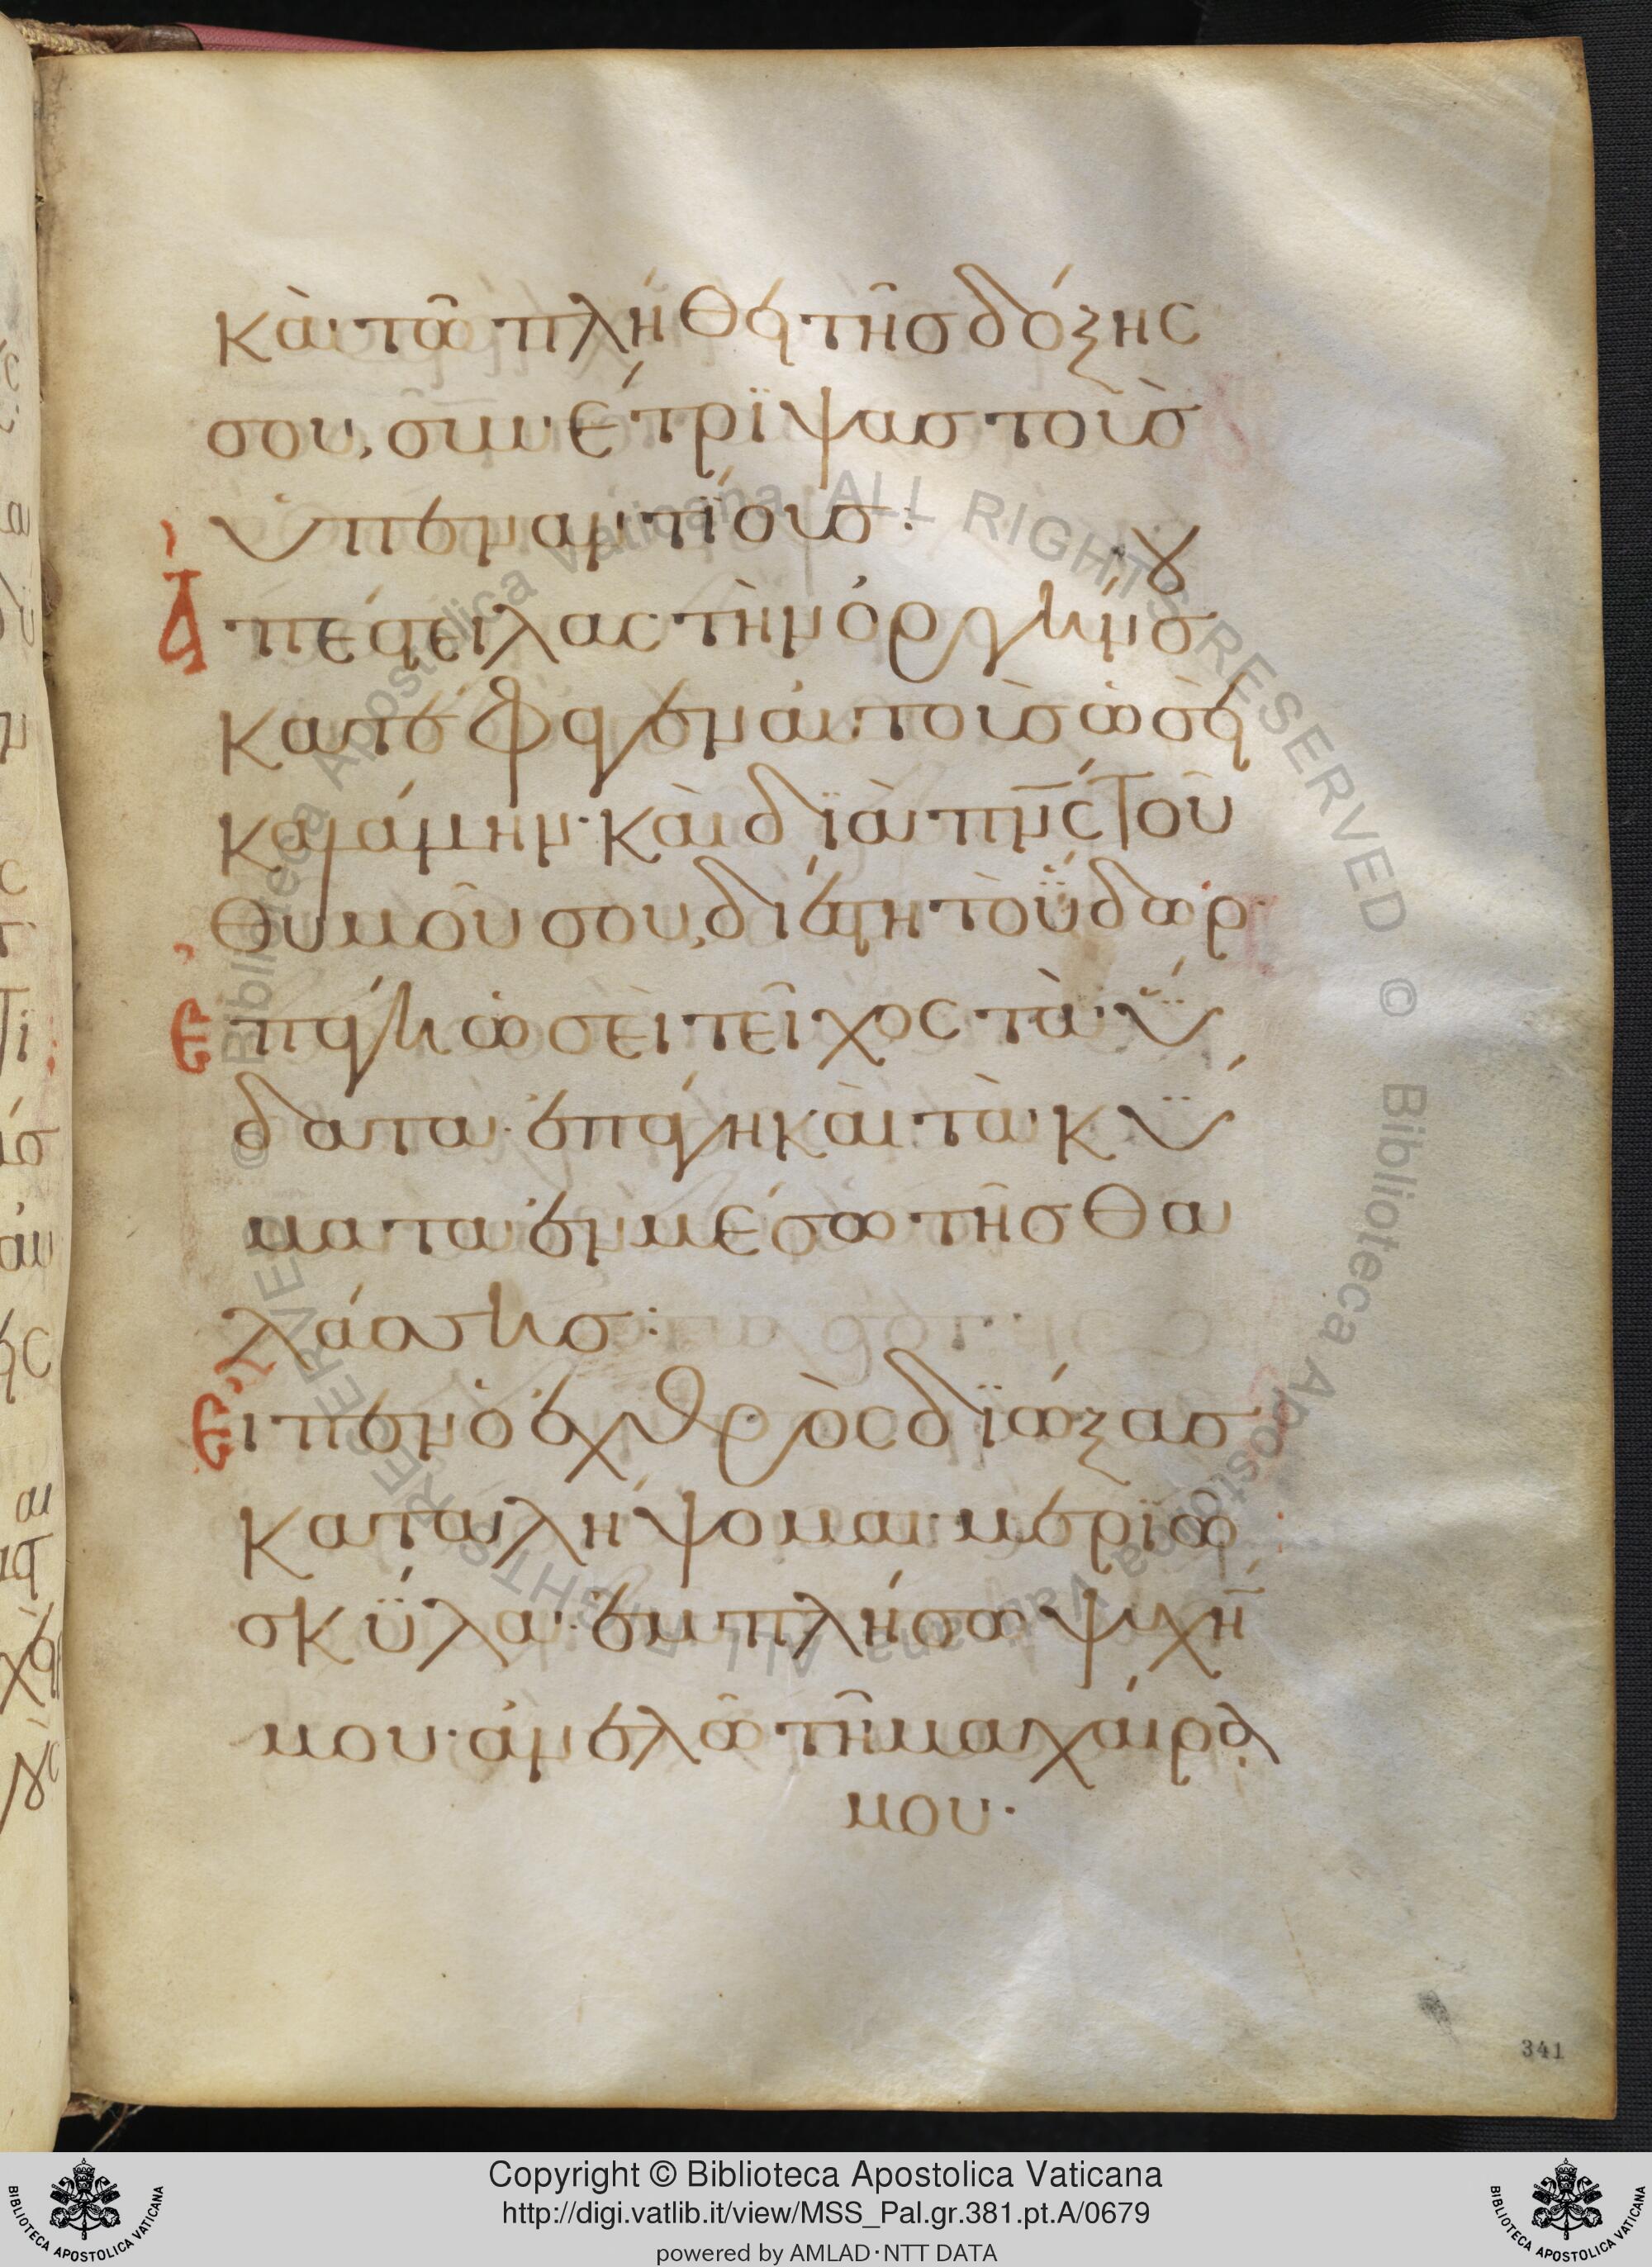 καὶ τῶ πλήθει τῆς δόξης
σου, συνέτριψας τοὺς
ὑπεναντίους:
Ἀπέστειλας τὴν ὀργήν σου
κατέφαγεν αὐτοὺς ὡσεὶ
καλάμην· καὶ διὰ πνς τοῦ
θυμοῦ σου, διέστη τὸ ὕδωρ·
Ἐπάγη ὡσεὶ τεῖχος τὰ ὕ
δατα· ἐπάγη καὶ τὰ κύ
ματα ἐν μέσω τῆς θα
λάσσης:
Εἶπεν ὁ ἐχθρὸς διώξας
καταλήψομαι· μεριῶ
σκῦλα· ἐμπλήσω ψυχήν
μου· ἀνελῶ τῆ μαχαίρα
μου·
341
© Biblioteca Apostolica Vaticana ALL RIGHTS RESERVED © Biblioteca Apostolica Vaticana ALL RIGHTS RESERVED
BIBLIOTECA APOSTOLICA VATICANA
Copyright © Biblioteca Apostolica Vaticana
http://digi.vatlib.it/view/MSS_Pal.gr.381.pt.A/0679
powered by AMLAD·NTT DATA
BIBLIOTECA APOSTOLICA VATICANA